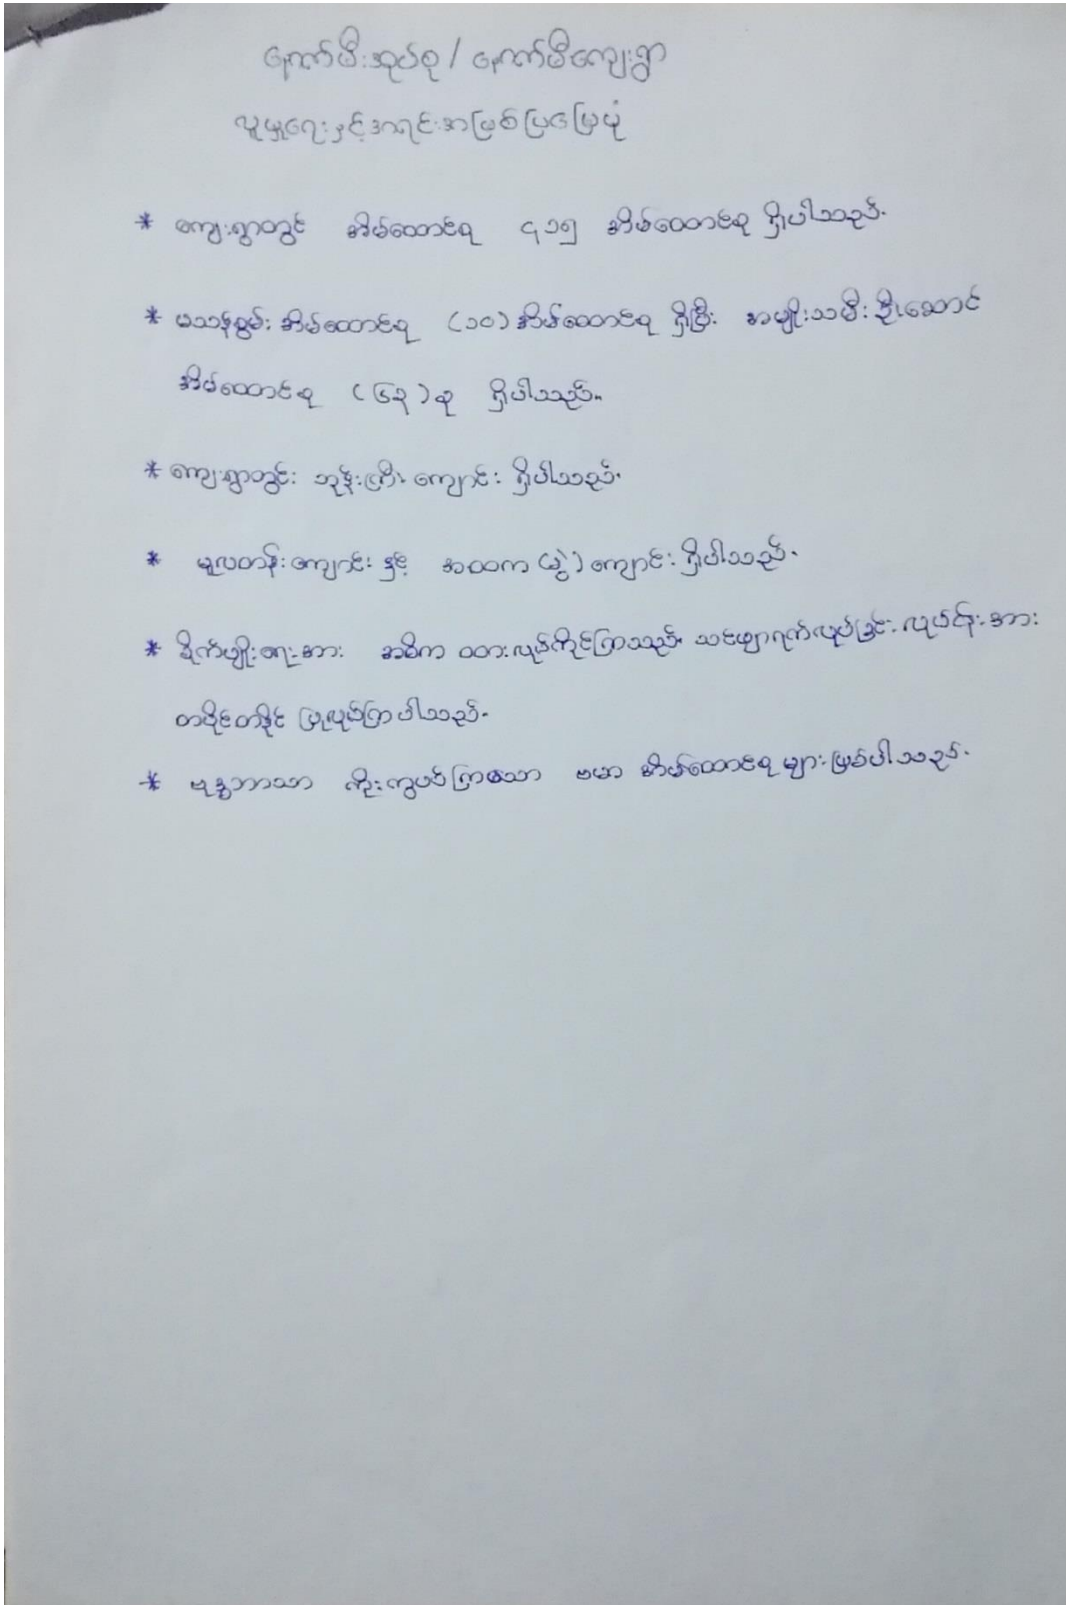 ရောက်မီးအုပ်စု / ရောက်မီကျေးရွာ
လူမှုရေးနှင့်အရင်းအမြစ်ပြမြေပုံ
* ကျေးရွာတွင် အိမ်ထောင်စု ၄၁၅ အိမ်ထောင်စု ရှိပါသည်.
* မသန်စွမ်း အိမ်ထောင်စု (၁၀) အိမ်ထောင်စု ရှိပြီး အမျိုးသမီး ဦးဆောင်
အိမ်ထောင်စု (၆၃) စု ရှိပါသည်။
* ကျေးရွာတွင်း ဘုန်းကြီး ကျောင်း ရှိပါသည်.
* မူလတန်းကျောင်း နှင့် အထက (ခွဲ) ကျောင်း ရှိပါသည်.
* စိုက်ပျိုးရေးအား အဓိက ထားလုပ်ကိုင်ကြသည်. သင်ဖျာရက်လုပ်ခြင်း လုပ်ငန်းအား
တပိုင်တနိုင် ပြုလုပ်ကြပါသည်.
* ဗုဒ္ဓဘာသာ ကိုးကွယ်ကြသော ဗမာ အိမ်ထောင်စု များဖြစ်ပါသည်.